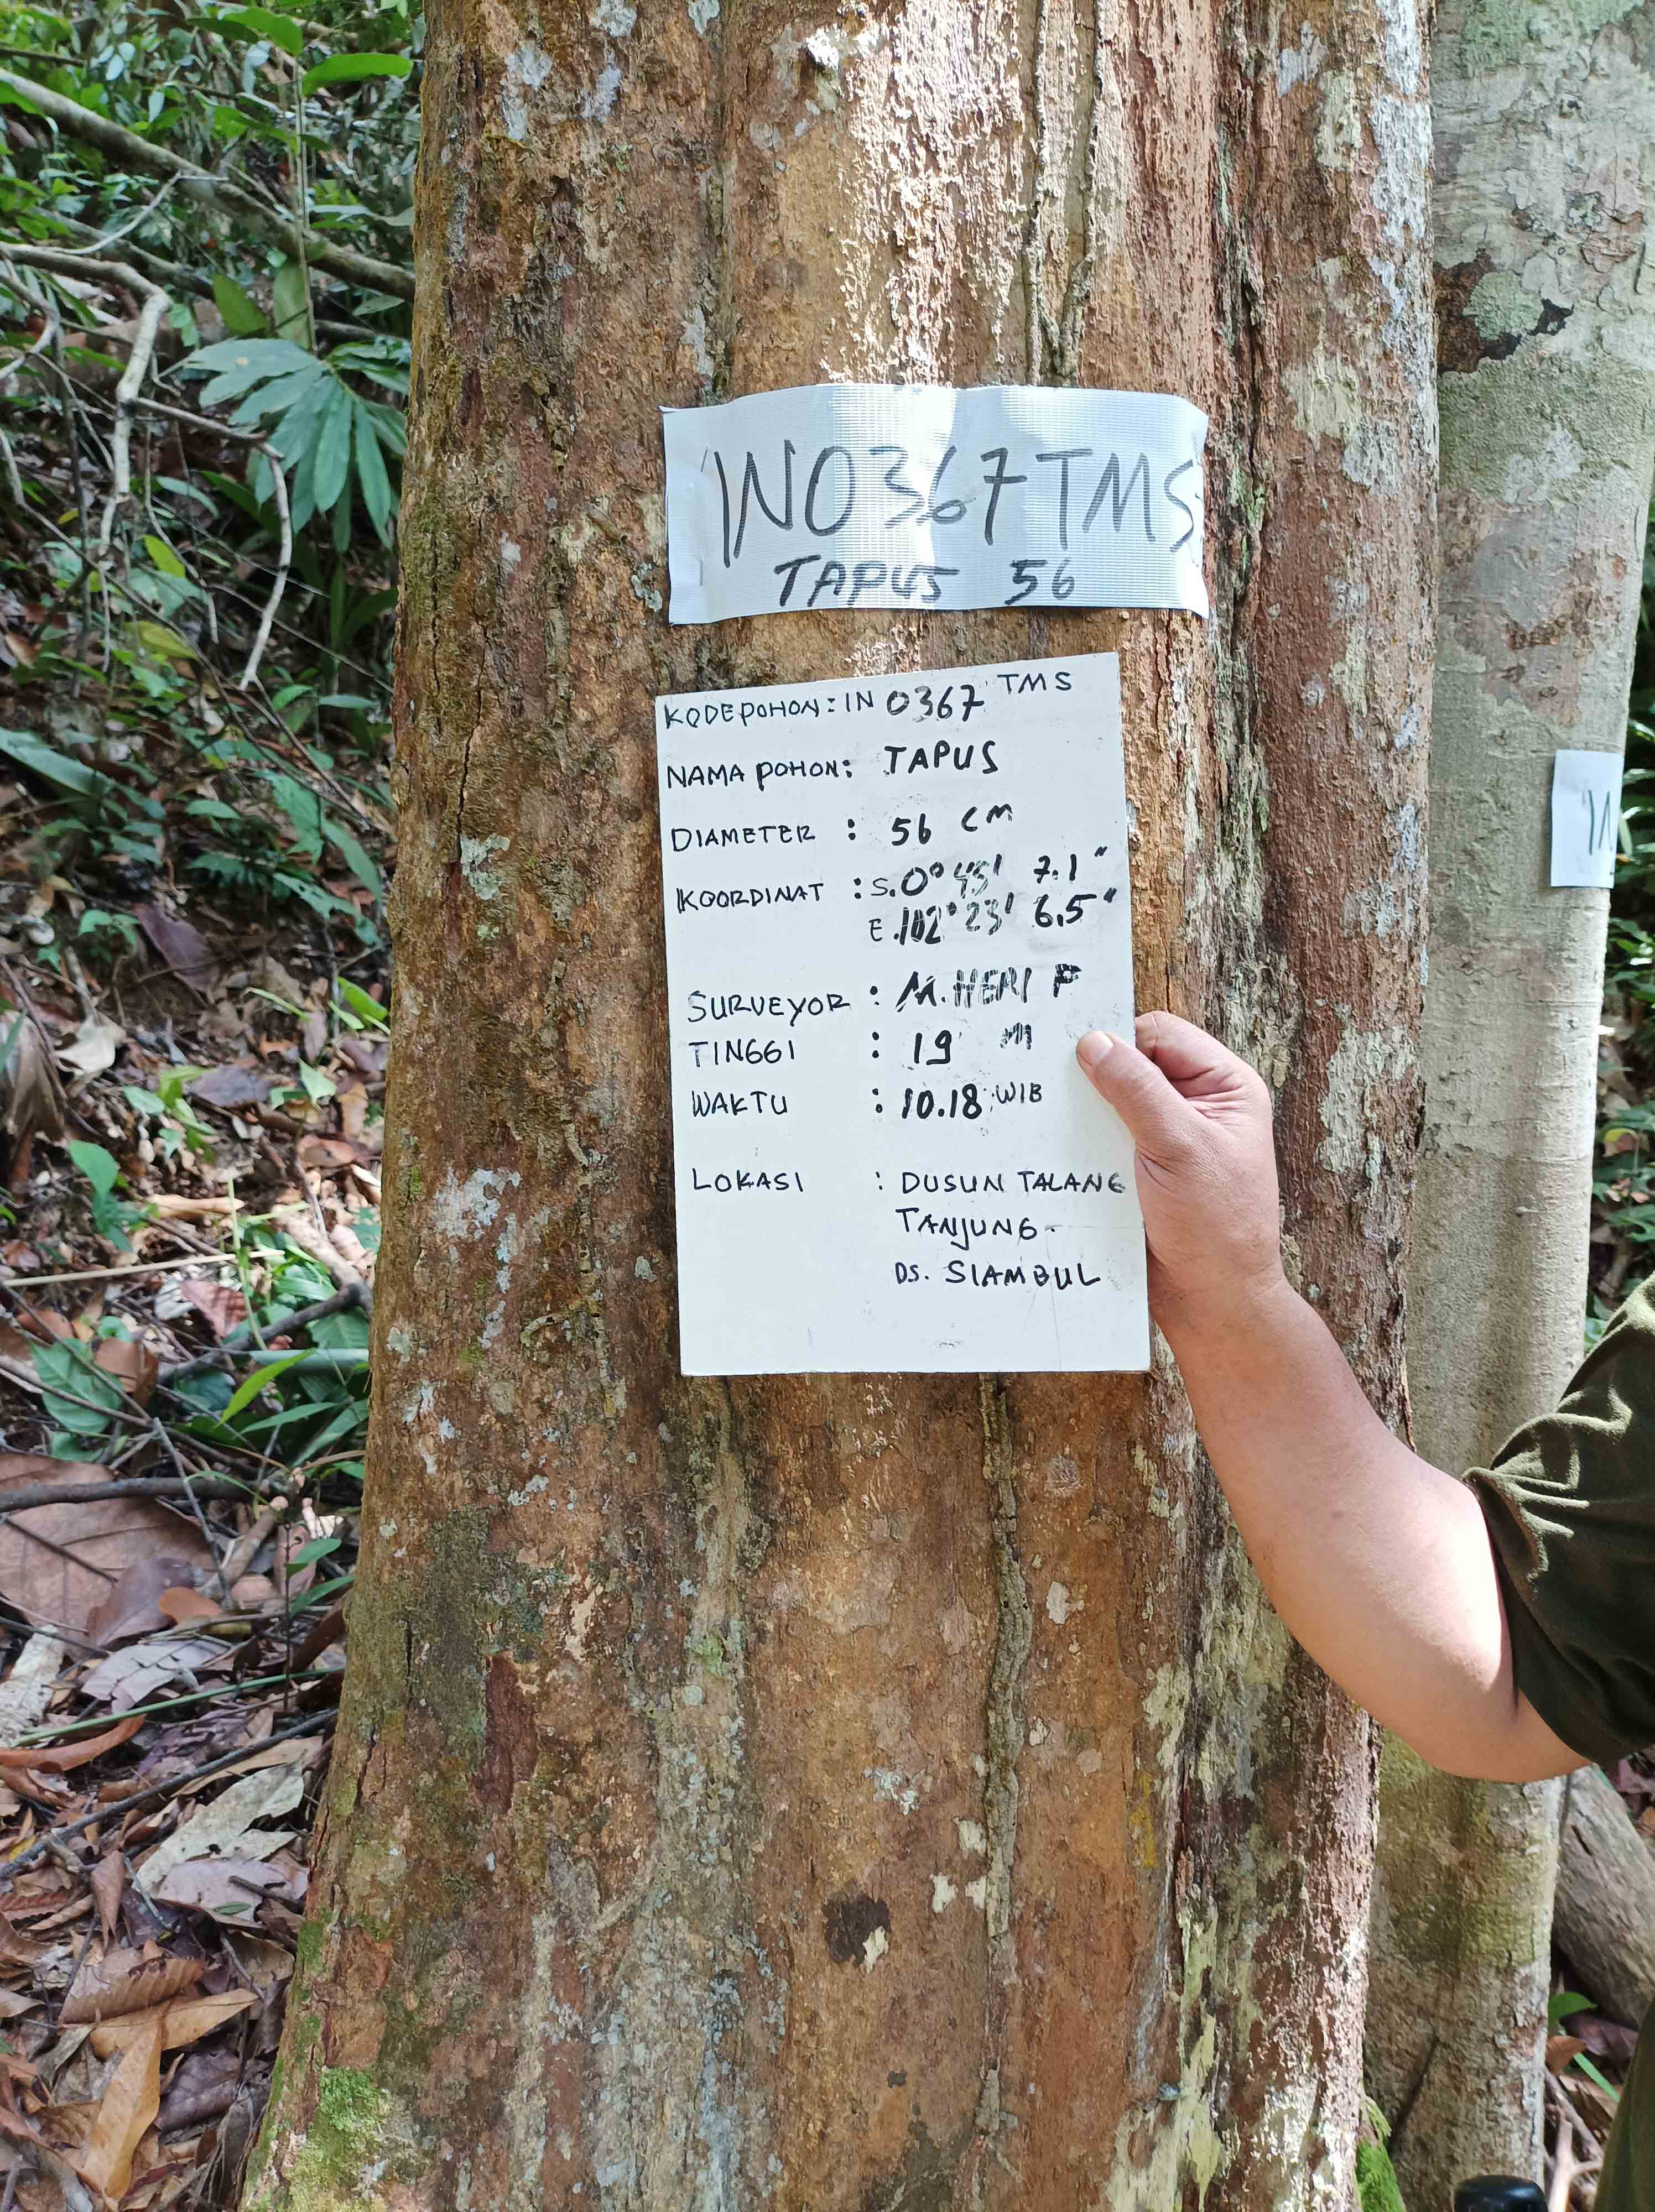 IN0367TMS
TAPUS 56
KODE POHON: IN 0367 TMS
NAMA POHON: TAPUS
DIAMETER : 56 CM
KOORDINAT : S. 0° 45' 7.1"
E. 102° 23' 6.5"
SURVEYOR : M. HERI F
TINGGI : 19 M
WAKTU : 10.18 WIB
LOKASI : DUSUN TALANG
TANJUNG.
DS. SIAMBUL